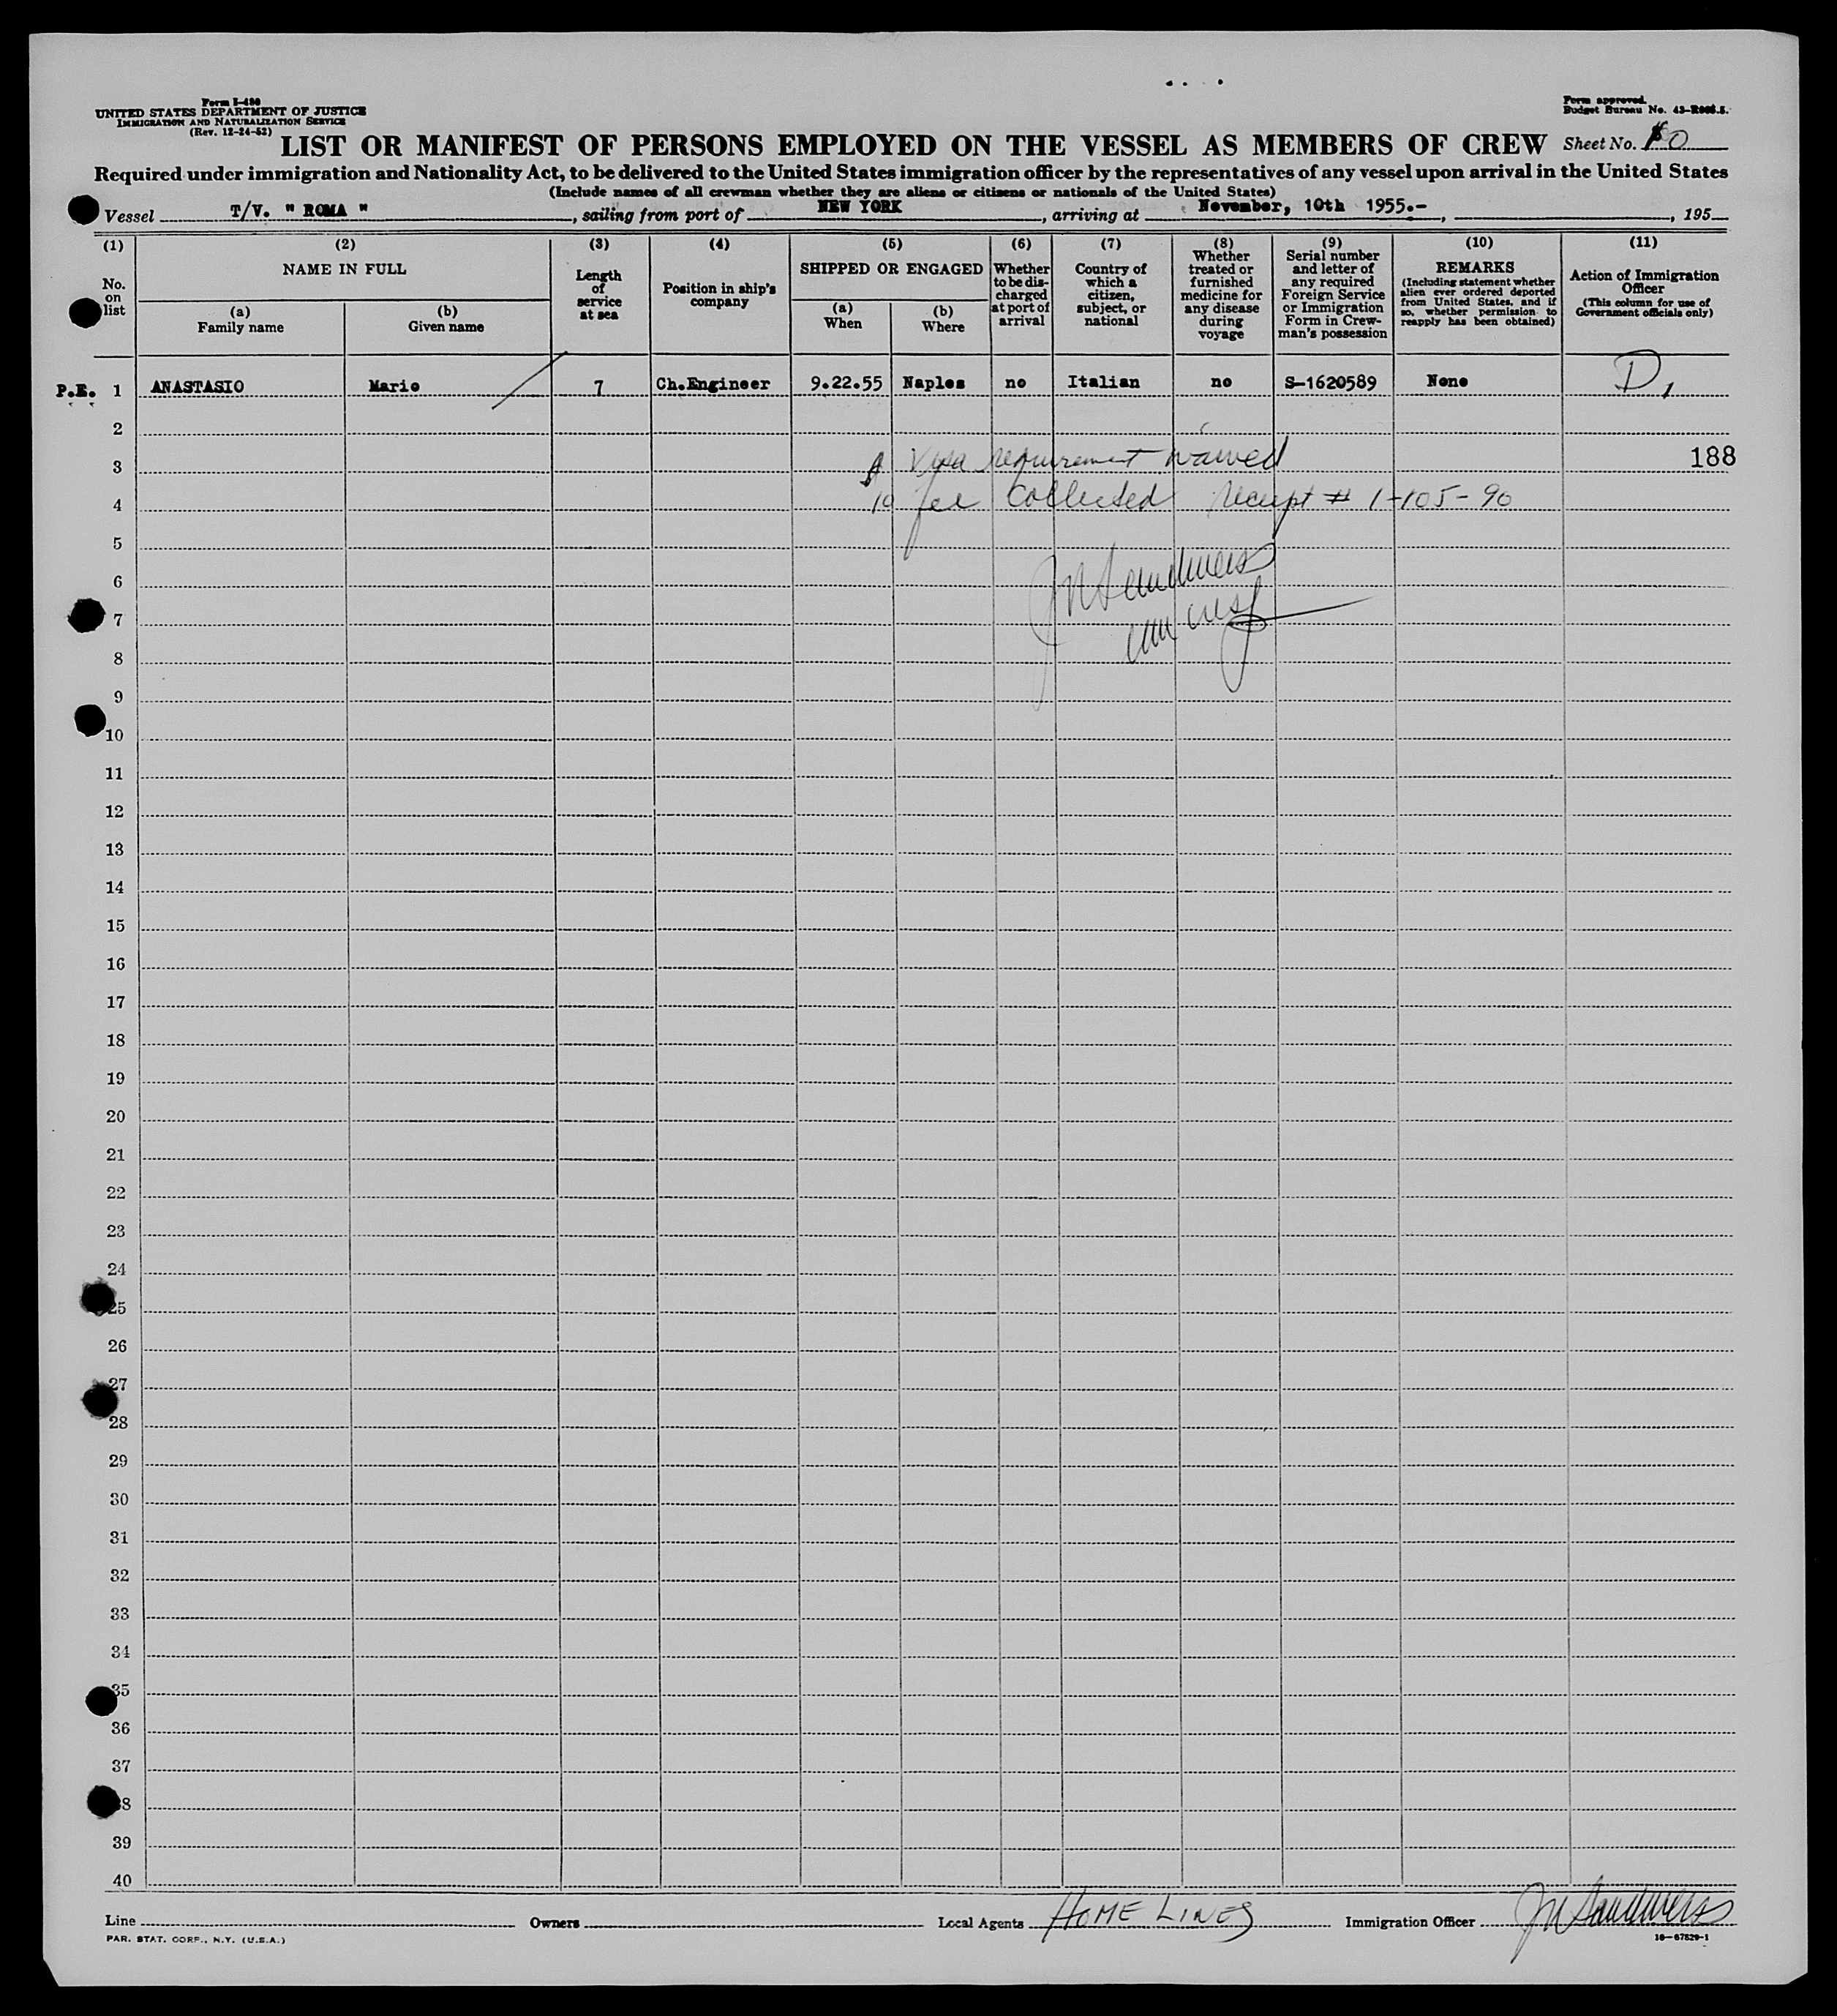 Form I-480
UNITED STATES DEPARTMENT OF JUSTICE
IMMIGRATION AND NATURALIZATION SERVICE
(Rev. 12-24-52)
Form approved.
Budget Bureau No. 43-
LIST OR MANIFEST OF PERSONS EMPLOYED ON THE VESSEL AS MEMBERS OF CREW Sheet No.
Required under immigration and Nationality Act, to be delivered to the United States immigration officer by the representatives of any vessel upon arrival in the United States
(Include names of all crewman whether they are aliens or citizens or nationals of the United States)
Vessel T/V. " ROMA ", sailing from port of NEW YORK, arriving at November, 10th 1955.-, , 195
(1) (2) (3) (4) (5) (6) (7) (8) (9) (10) (11)
No. on list
NAME IN FULL
(a) Family name
(b) Given name
Length of service at sea
Position in ship's company
SHIPPED OR ENGAGED
(a) When
(b) Where
Whether to be discharged at port of arrival
Country of which a citizen, subject, or national
Whether treated or furnished medicine for any disease during voyage
Serial number and letter of any required Foreign Service or Immigration Form in Crewman's possession
REMARKS
(Including statement whether alien ever ordered deported from United States, and if so, whether permission to reapply has been obtained)
Action of Immigration Officer
(This column for use of Government officials only)
P.E. 1 ANASTASIO Mario 7 Ch.Engineer 9.22.55 Naples no Italian no S-1620589 None D,
2
3 Visa requirement waived 188
4 10 fee collected receipt # 1-105-90
5
6
7
8
9
10
11
12
13
14
15
16
17
18
19
20
21
22
23
24
25
26
27
28
29
30
31
32
33
34
35
36
37
38
39
40
Line Owners Local Agents HOME LINES Immigration Officer
PAR. STAT. CORP., N.Y. (U.S.A.)
16-67829-1